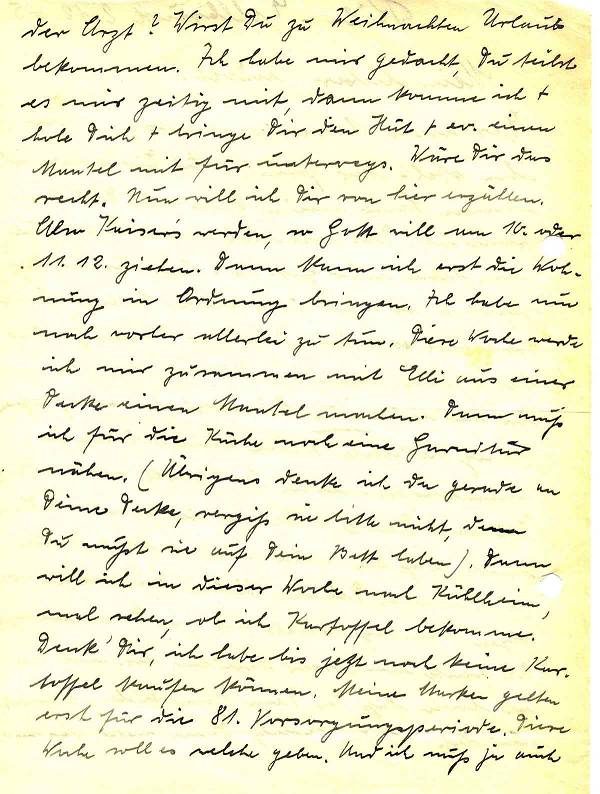 der Arzt? Wirst Du zu Weihnachten Urlaub
bekommen. Ich habe mir gedacht, Du teilst
es mir zeitig mit, dann komme ich +
hole Dich + bringe Dir den Hut + ev. einen
Mantel mit für unterwegs. Wäre Dir das
recht. Nun will ich Dir von hier erzählen.
Also Kaiser's werden, so Gott will am 10. oder
11. 12. ziehen. Dann kann ich erst die Woh-
nung in Ordnung bringen. Ich habe nun
noch vorher allerlei zu tun. Diese Woche werde
ich mir zusammen mit Elli aus einer
Decke einen Mantel machen. Dann muß
ich für die Küche noch eine Garnitur
nähen. (Übrigens denke ich da gerade an
Deine Decke, vergiß sie bitte nicht, denn
Du mußt sie auf Dein Bett haben). Dann
will ich in dieser Woche nach Kühlheim,
mal sehen, ob ich Kartoffel bekomme.
Denk' Dir, ich habe bis jetzt noch keine Kar-
toffel kaufen können. Meine Marken gelten
erst für die 81. Versorgungsperiode. Diese
Woche soll es welche geben. Und ich muß ja auch